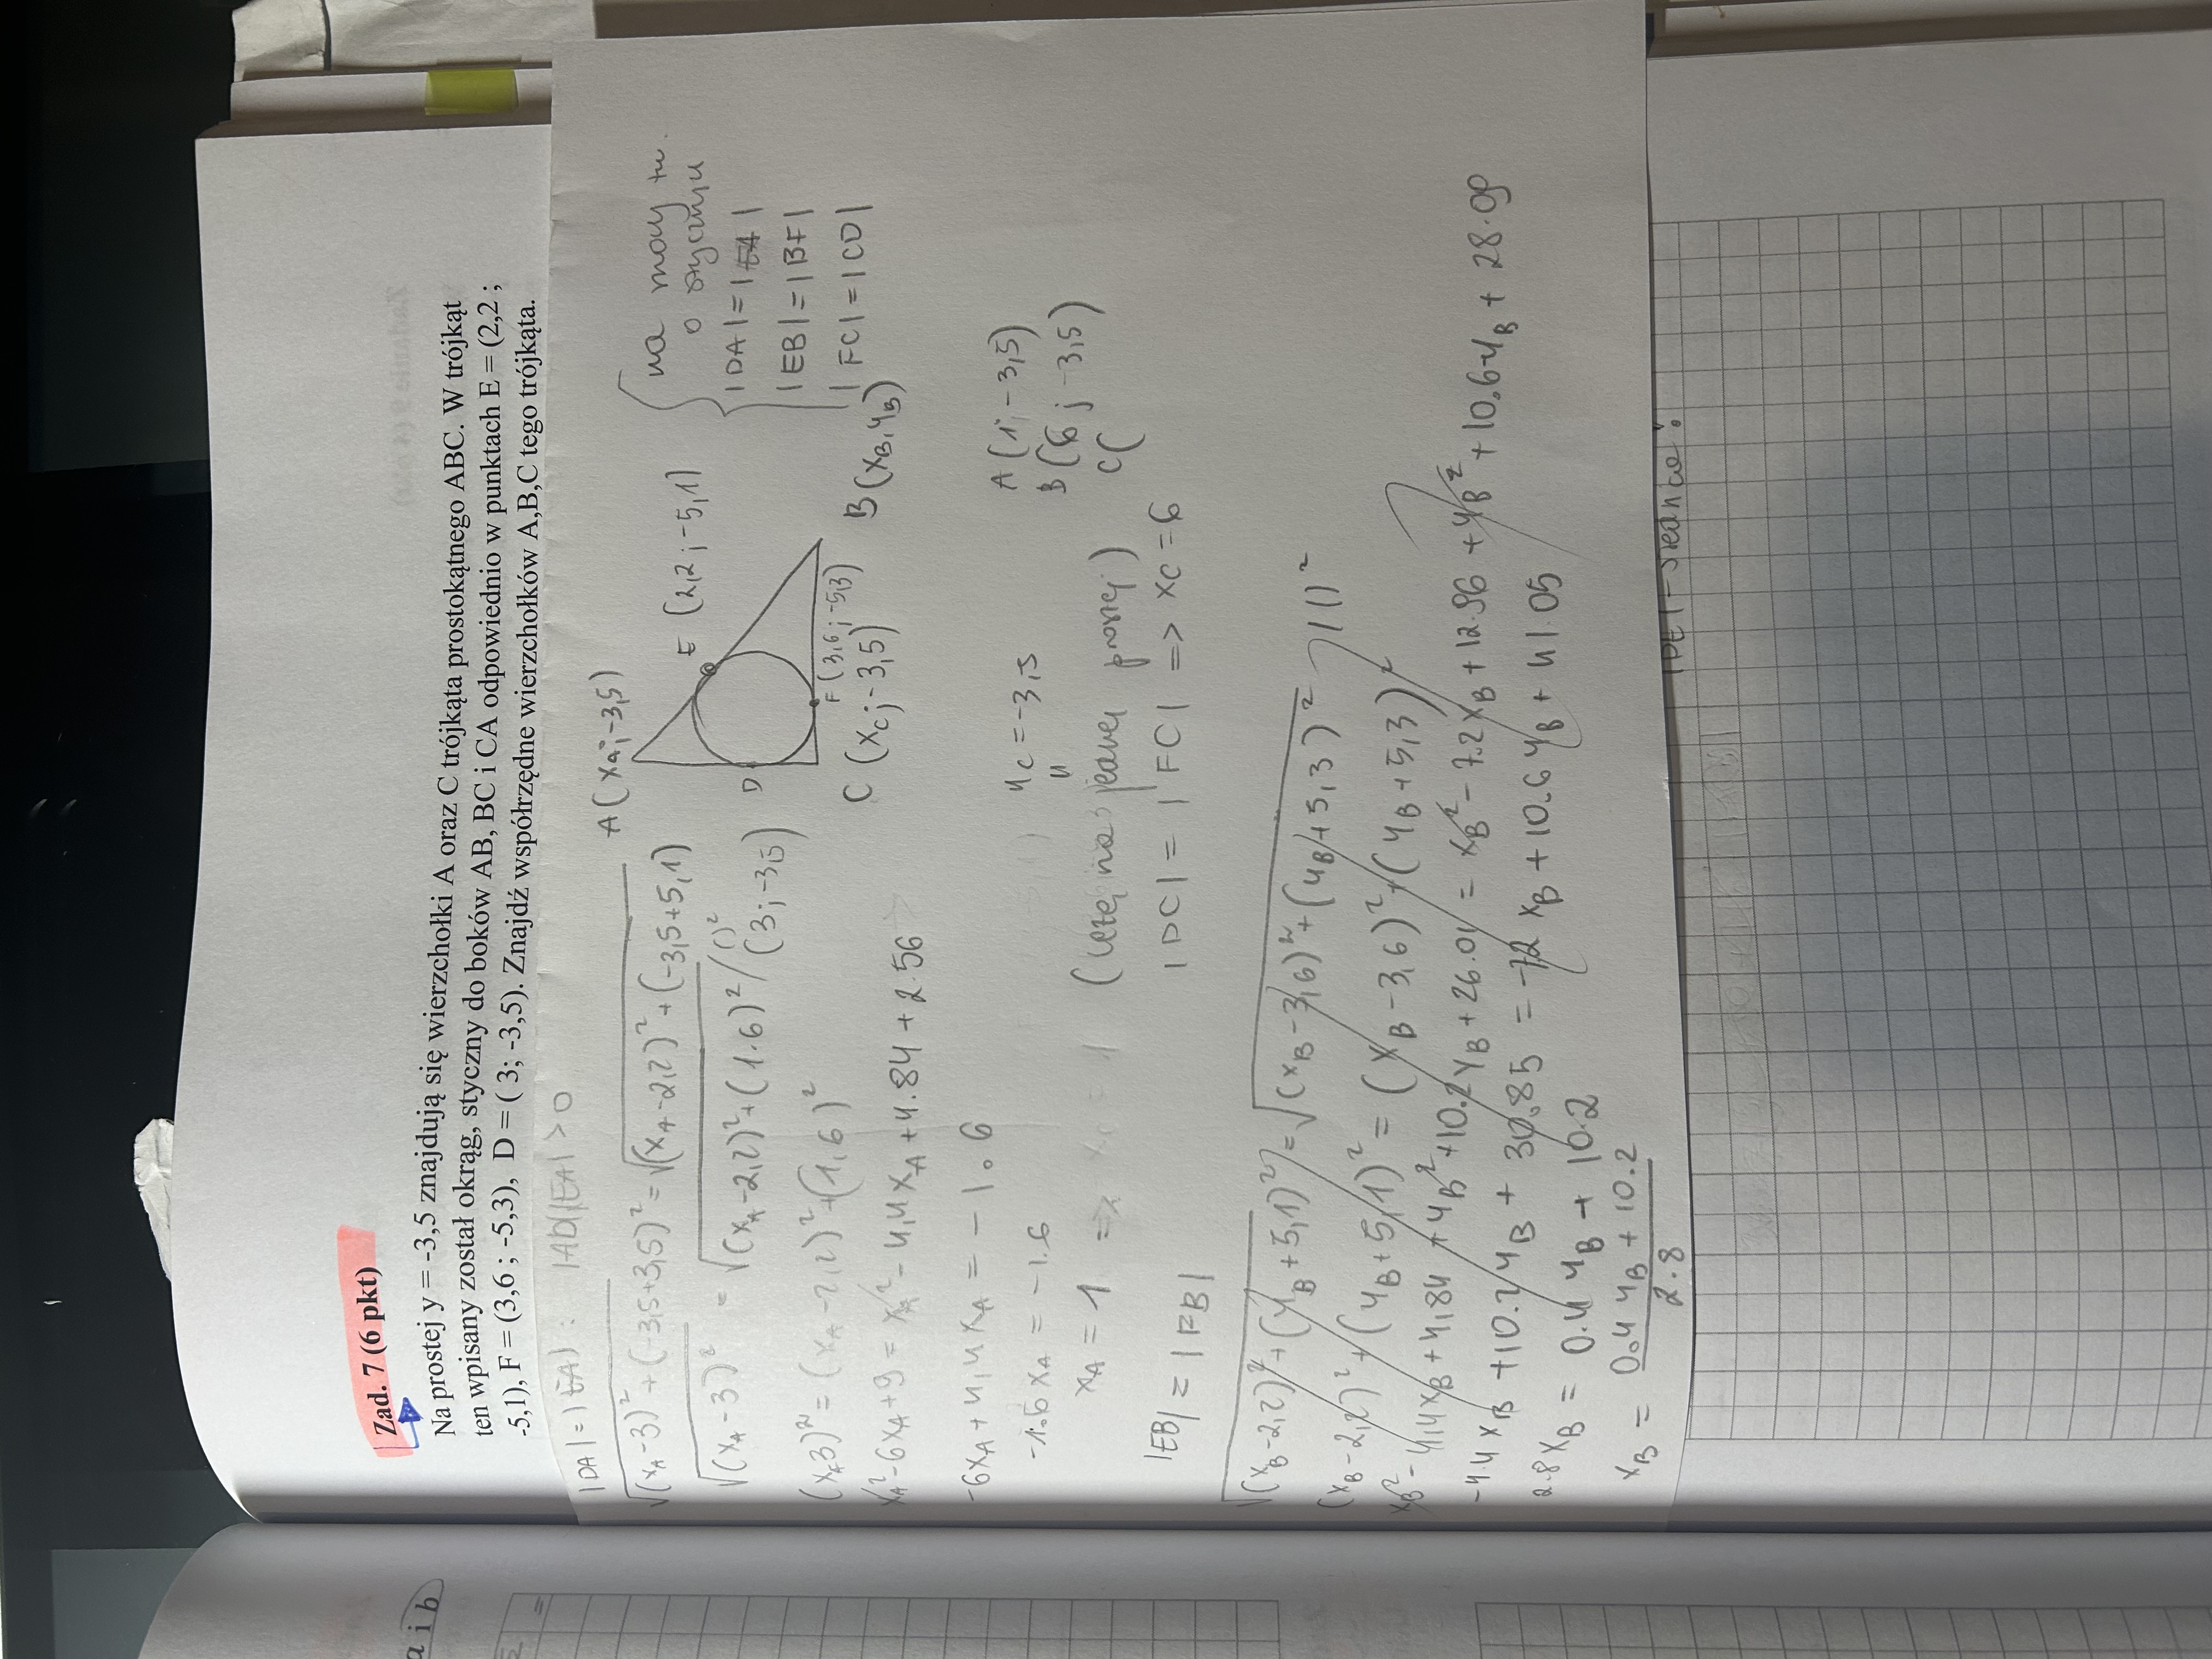 Zad. 7 (6 pkt)
Na prostej y = -3,5 znajdują się wierzchołki A oraz C trójkąta prostokątnego ABC. W trójkąt
ten wpisany został okrąg, styczny do boków AB, BC i CA odpowiednio w punktach E = (2,2 ;
-5,1), F = (3,6 ; -5,3), D = ( 3; -3,5). Znajdź współrzędne wierzchołków A,B,C tego trójkąta.
|DA| = |EA| : |AD||EA| > 0
√(x_A-3)² + (-3,5+3,5)² = √(x_A-2,2)² + (-3,5+5,1)
√(x_A-3)² = √(x_A-2,2)² + (1.6)² / ()²
(x_A-3)² = (x_A-2,2)² + (1,6)²
x_A² - 6x_A + 9 = x_A² - 4,4x_A + 4.84 + 2.56
-6x_A + 4,4x_A = -1.6
-1.6x_A = -1.6
x_A = 1
A(x_A; -3,5)
E (2,2; -5,1)
D
(3; -3,5)
F (3,6; -5,3)
C (x_C; -3,5)
B (x_B, y_B)
na mocy tw.
o stycznu
|DA| = |EA|
|EB| = |BF|
|FC| = |CD|
y_C = -3,5
(leżą na jednej prostej)
|DC| = |FC| => x_C = 6
A (1; -3,5)
B (6; -3,5)
C (
|EB| = |FB|
√(x_B-2,2)² + (y_B+5,1)² = √(x_B-3,6)² + (y_B+5,3)² / ()²
(x_B-2,2)² + (y_B+5,1)² = (x_B-3,6)² + (y_B+5,3)²
x_B² - 4,4x_B + 4,84 + y_B² + 10.2y_B + 26.01 = x_B² - 7.2x_B + 12.96 + y_B² + 10.6y_B + 28.09
-4.4x_B + 10.2y_B + 30.85 = -7.2x_B + 10.6y_B + 41.05
2.8x_B = 0.4y_B + 10.2
x_B = 0.4y_B + 10.2
2.8
a i b